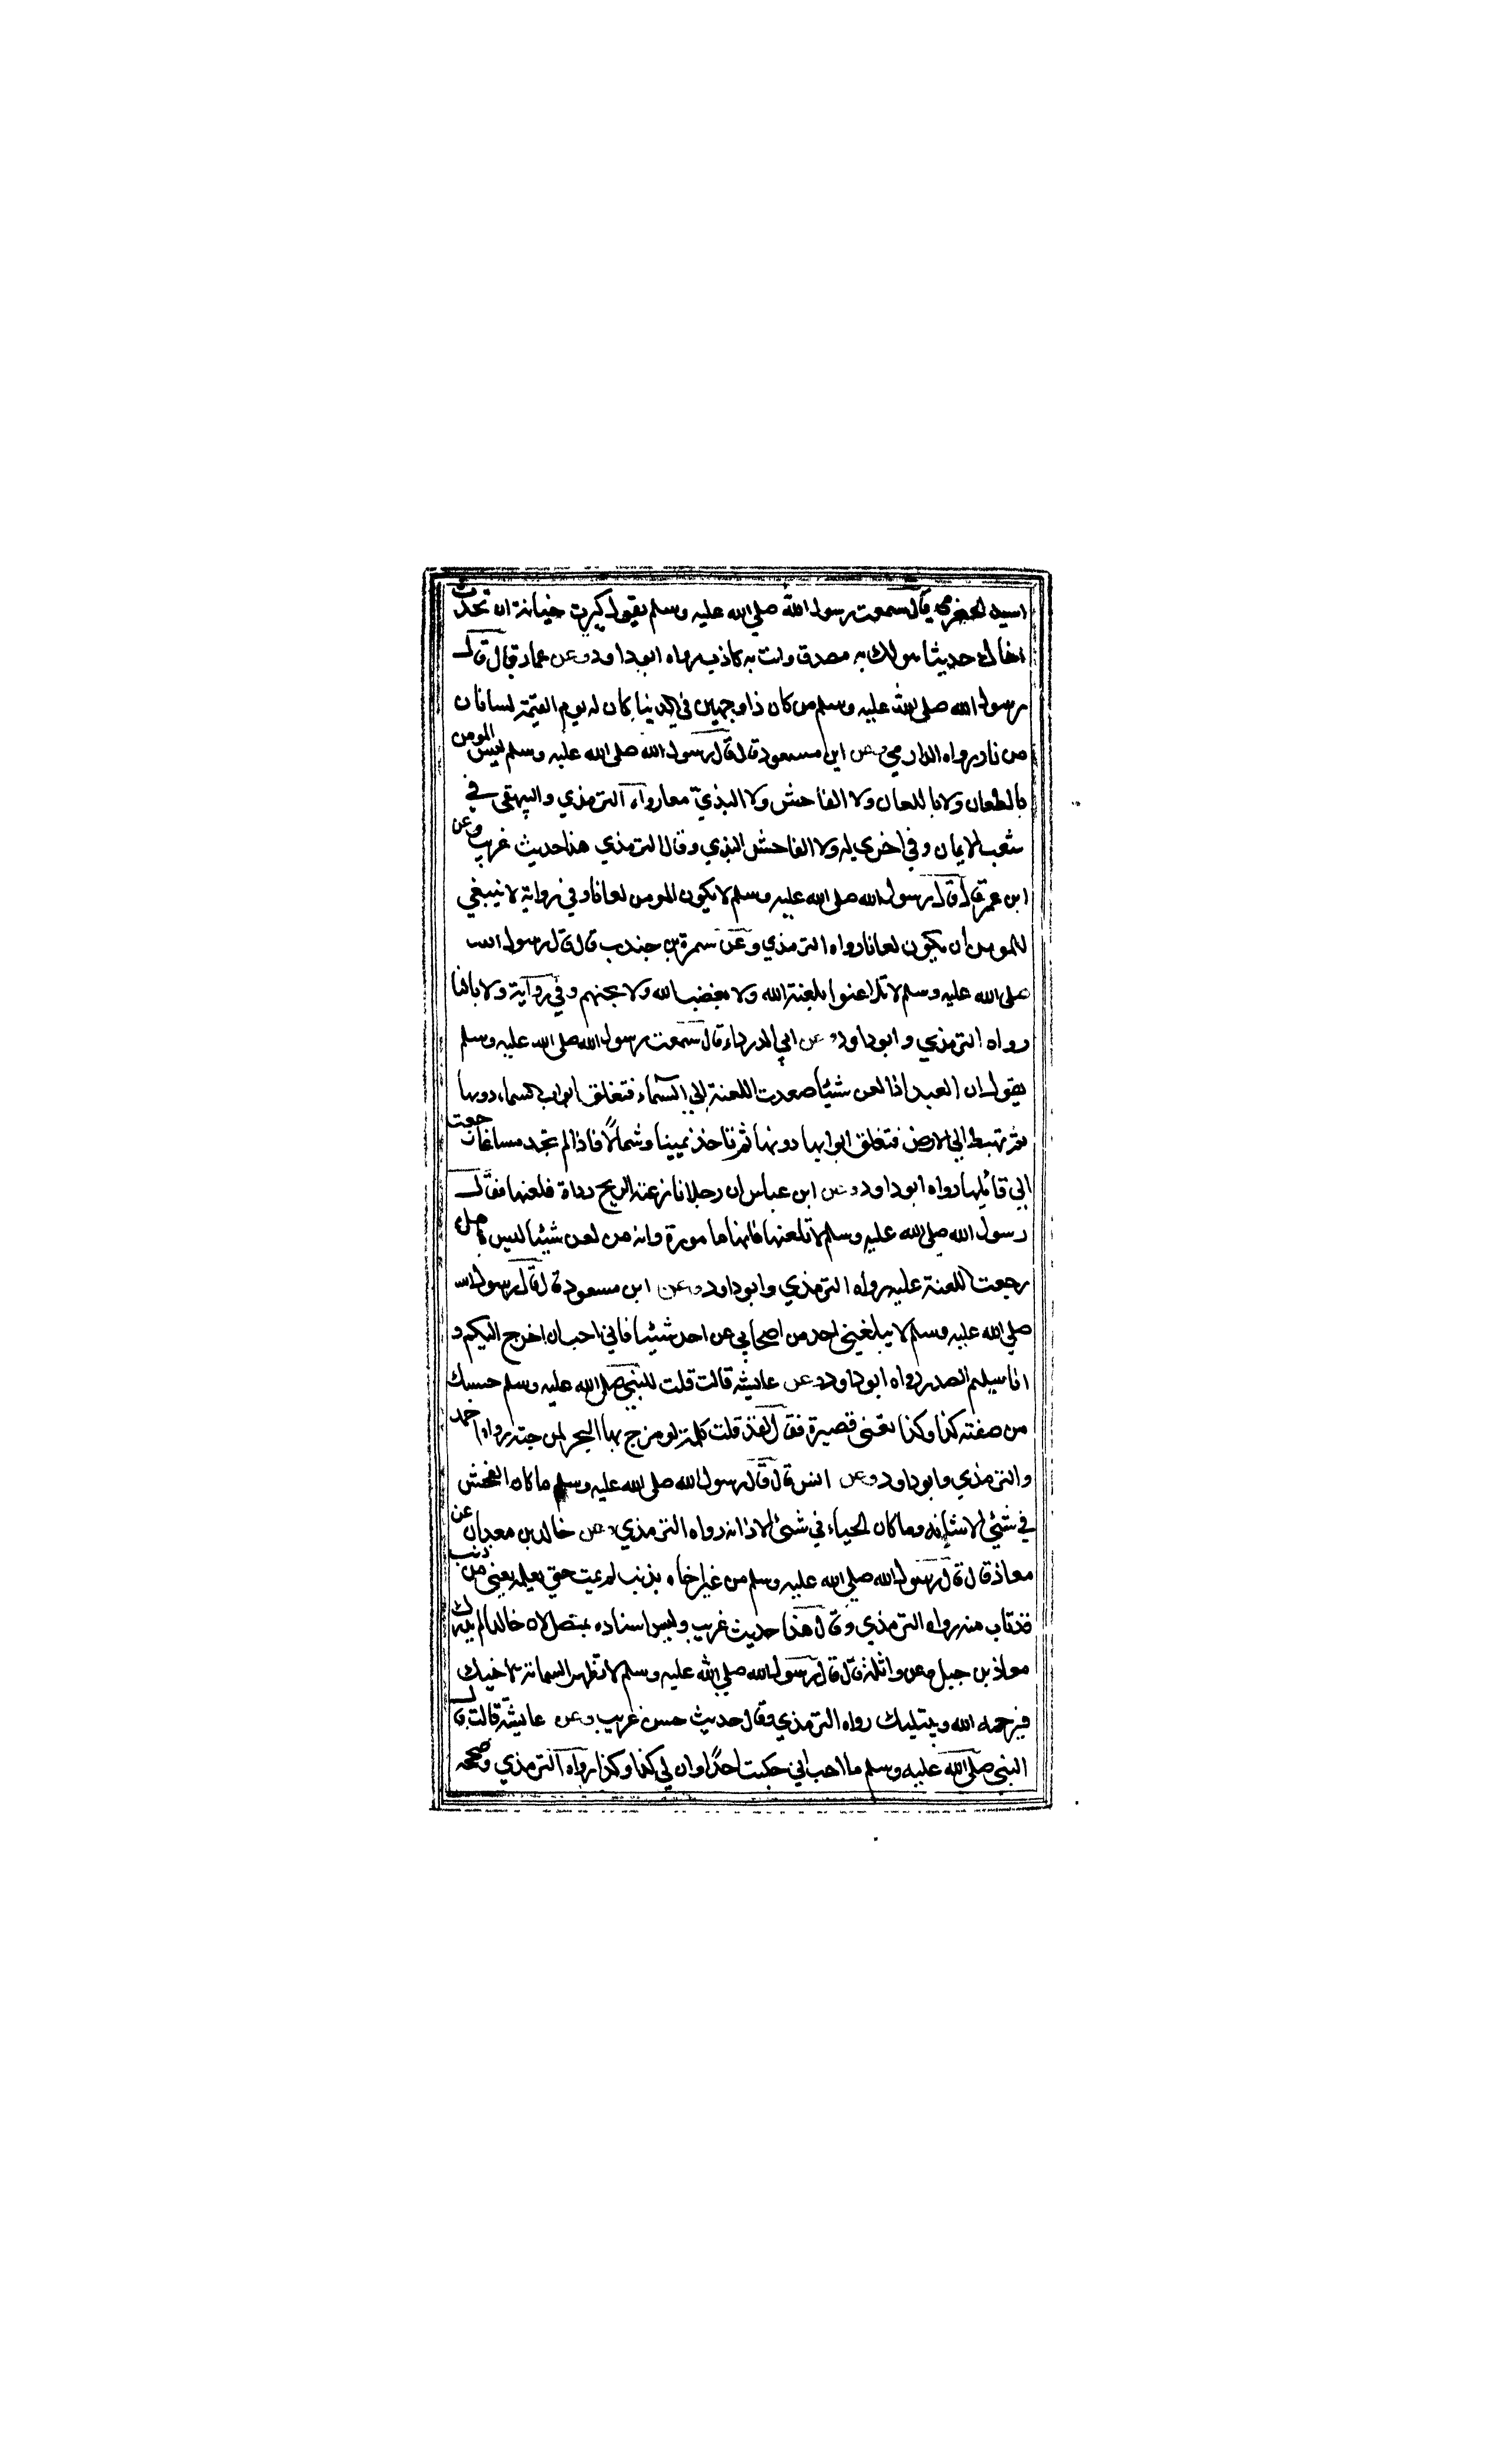 اسيد الحضرمي قال سمعت رسول الله صلي الله عليه وسلم يقول كبرت خيانة ان تحدث
اخاك حديثا هو لك به مصدق وانت به كاذب رواه ابوداود وعن عمار قال قال
رسول الله صلي الله عليه وسلم من كان ذا وجهين في الدنيا كان له يوم القيمة لسانان
من نار رواه الدارمي وعن ابن مسعود قال قال رسول الله صلي الله عليه وسلم ليس المومن
بالطعان ولا باللعان ولا الفاحش ولا البذي معا رواه الترمذي والبيهقي في
شعب الايمان وفي اخري له ولا الفاحش البذي وقال الترمذي هذا حديث غريب وعن
ابن عمر قال قال رسول الله صلي الله عليه وسلم لا يكون المومن لعانا وفي رواية لا ينبغي
للمومن ان يكون لعانا رواه الترمذي وعن سمرة بن جندب قال قال رسول الله
صلي الله عليه وسلم لا تلاعنوا بلعنة الله ولا بغضب الله ولا بجهنم وفي رواية ولا بالنا
رواه الترمذي وابوداود وعن ابي الدرداء قال سمعت رسول الله صلي الله عليه وسلم
يقول ان العبد اذا لعن شيئا صعدت اللعنة الي السماء فتغلق ابواب السماء دونها
ثم تهبط الي الارض فتغلق ابوابها دونها ثم تاخذ يمينا وشمالا فاذا لم تجد مساغا رجعت
الي قائلها رواه ابوداود وعن ابن عباس ان رجلا نازعته الريح رداة فلعنها فقال
رسول الله صلي الله عليه وسلم لا تلعنها فانها مامورة وانه من لعن شيئا ليس له باهل
رجعت اللعنة عليه رواه الترمذي وابوداود وعن ابن مسعود قال قال رسول الله
صلي الله عليه وسلم لا يبلغني احد من اصحابي عن احد شيئا فاني احب ان اخرج اليكم و
انا سليم الصدر رواه ابوداود وعن عايشه قالت قلت للنبي صلي الله عليه وسلم حسبك
من صفته كذا وكذا تعني قصيرة فقال لقد قلت كلمة لو مزج بها البحر لمزجته رواه احمد
والترمذي وابوداود وعن انس قال قال رسول الله صلي الله عليه وسلم ما كان الفحش
في شيئ الا شانه وما كان الحياء في شئ الا زانه رواه الترمذي وعن خالد بن معدان عن
معاذ قال قال رسول الله صلي الله عليه وسلم من غير اخاه بذنب لم يمت حتي يعمله يعني من ذنب
قد تاب منه رواه الترمذي وقال هذا حديث غريب وليس اسناده بمتصل لان خالدا لم يدرك
معاذ بن جبل وعن واثلة قال قال رسول الله صلي الله عليه وسلم لا تظهر الشماتة لاخيك
فيرحمه الله ويبتليك رواه الترمذي وقال حديث حسن غريب وعن عايشة قالت قال
النبي صلي الله عليه وسلم ما احب اني حكيت احدًا وان لي كذا وكذا رواه الترمذي وصححه